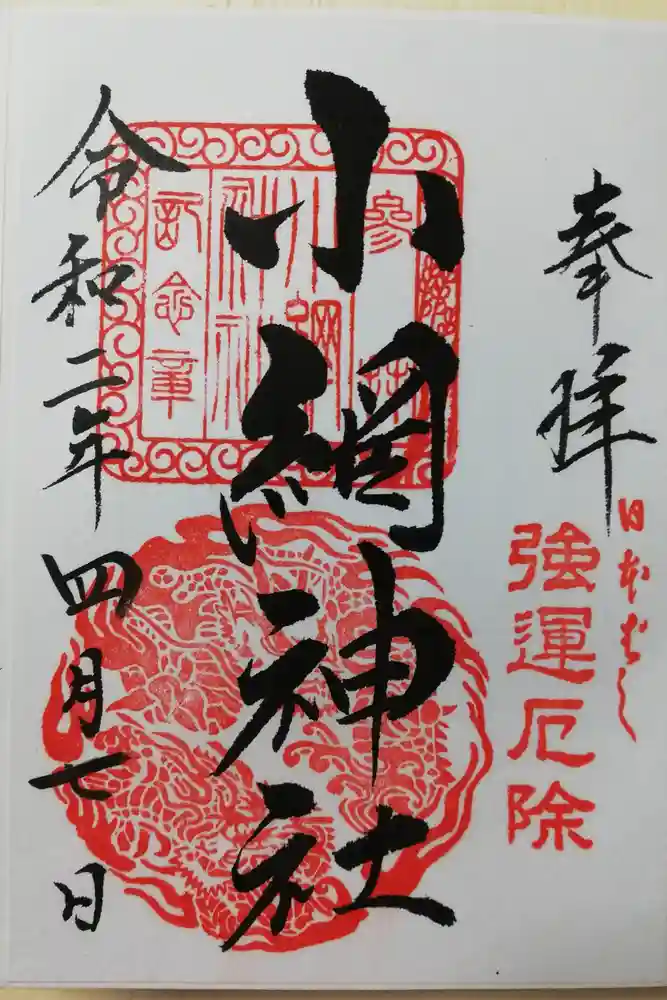 奉拝
日本ばし
強運厄除
小網神社
参拝
小網
神社
記念章
令和二年四月七日